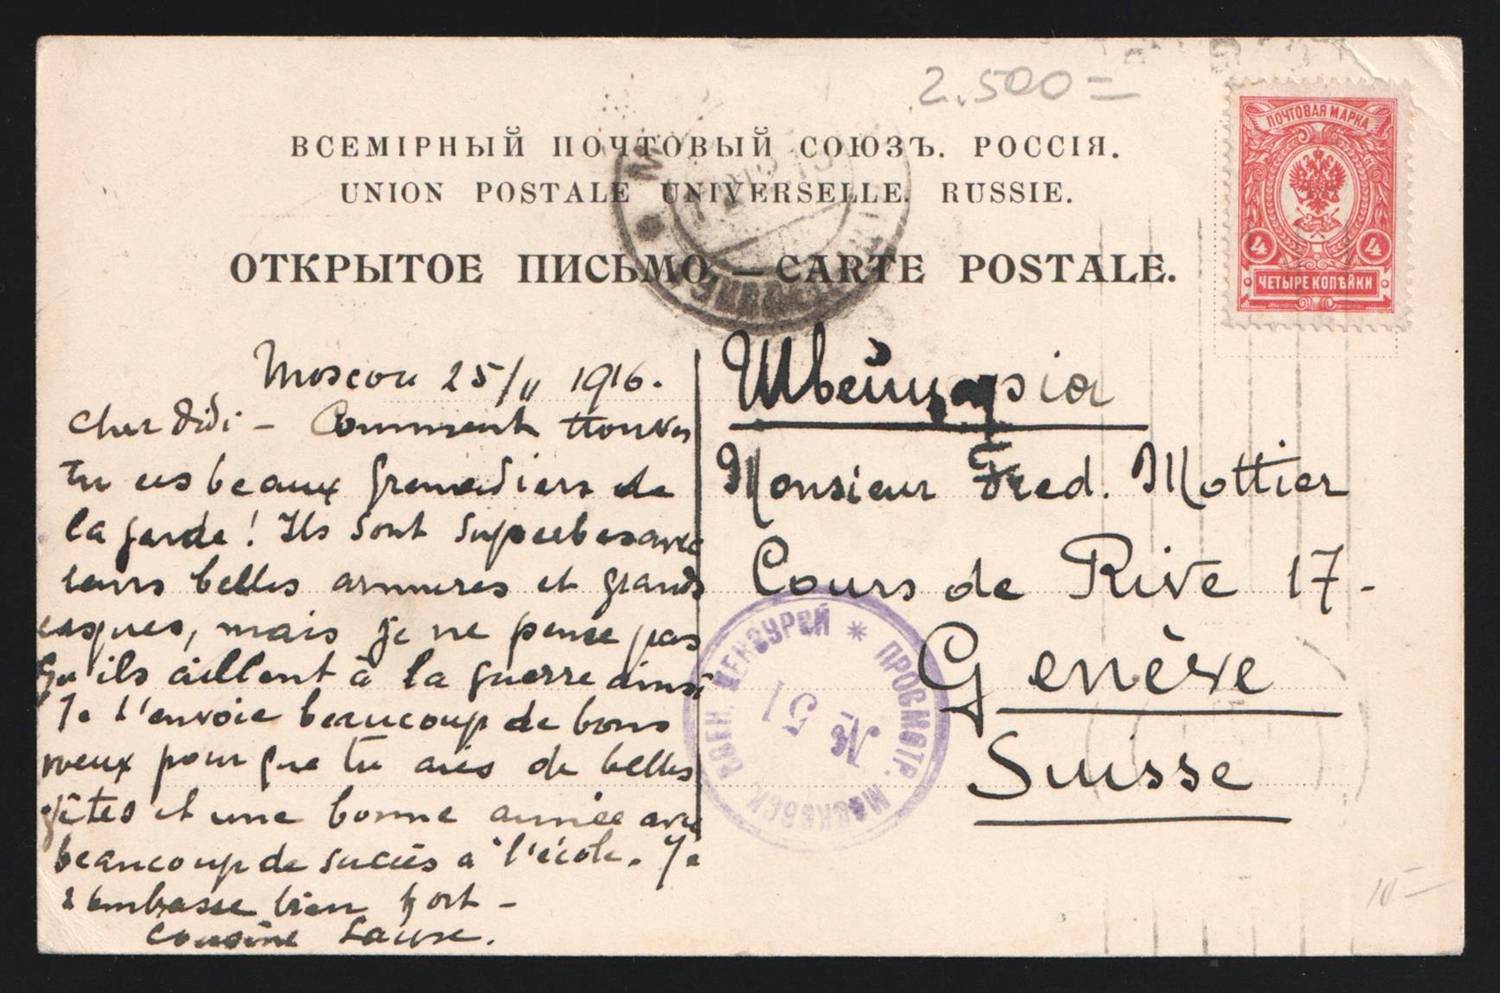 2.500=
ВСЕМІРНЫЙ ПОЧТОВЫЙ СОЮЗЪ. РОССІЯ.
UNION POSTALE UNIVERSELLE. RUSSIE.
ОТКРЫТОЕ ПИСЬМО. — CARTE POSTALE.
ПОЧТОВАЯ МАРКА
4 4
ЧЕТЫРЕ КОПѢЙКИ
Moscou 25/II 1916.
Cher Didi – Comment trouves
tu ces beaux grenadiers de
la garde! Ils sont superbes avec
leurs belles armures et grands
casques, mais je ne pense pas
qu'ils aillent à la guerre ainsi
Je t'envoie beaucoup de bons
voeux pour que tu aies de belles
fêtes et une bonne année avec
beaucoup de succès à l'école. Je
t'embrasse bien fort –
Cousine Laure.
Швейцарія
Monsieur Fred. Mottier
Cours de Rive 17-
Genève
Suisse
ПРОСМОТР. МОСКОВСК. ВОЕН. ЦЕНЗУРОЙ *
№ 51
10–